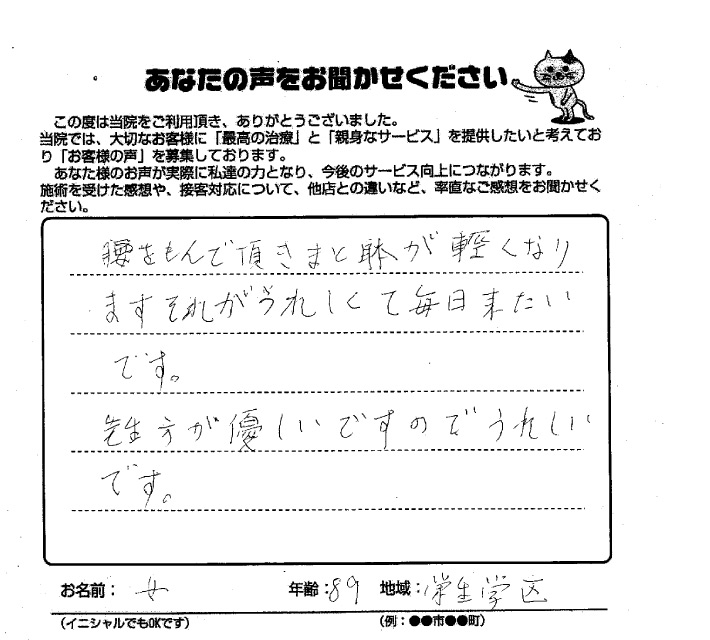 あなたの声をお聞かせください
この度は当院をご利用頂き、ありがとうございました。
当院では、大切なお客様に「最高の治療」と「親身なサービス」を提供したいと考えてお
り「お客様の声」を募集しております。
あなた様のお声が実際に私達の力となり、今後のサービス向上につながります。
施術を受けた感想や、接客対応について、他店との違いなど、率直なご感想をお聞かせく
ださい。
腰をもんで頂きまと体が軽くなり
ますそれがうれしくて毎日来たい
です。
先生方が優しいですのでうれしい
です。
お名前： 女 年齢：89 地域：学生学区
（イニシャルでもOKです） （例：●●市●●町）